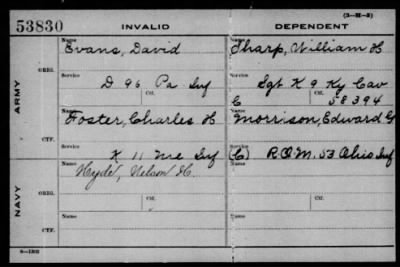 53830 INVALID (3—M—3) DEPENDENT
ARMY
ORIG.
Name Evans, David
Name Sharp, William H
Service D 96 Pa Inf
Service Sgt K 9 Ky Cav
Ctf.
Ctf. C 58394
CTF.
Name Foster, Charles H
Name Morrison, Edward G
Service K 11 Me Inf
Service (C) R.Q.M. 53 Ohio Inf
NAVY
ORIG.
Name Hyde, Nelson H.
Name
CTF.
Name
Name